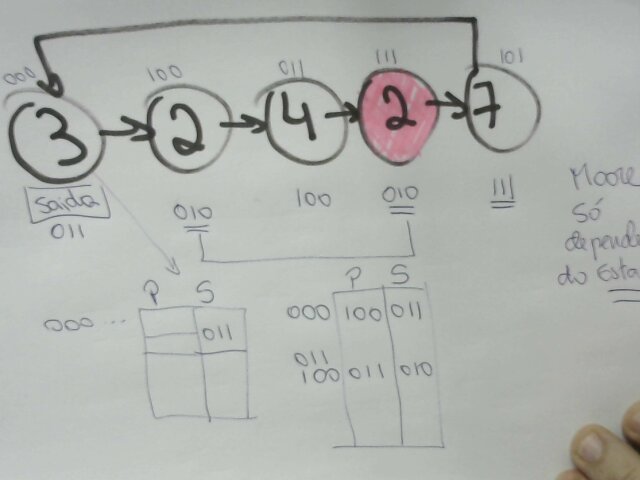 000 100 011 111 101
3 2 4 2 7
Saída
011 010 100 010 111
Moore
só
depende
do Esta
P S
000 ... 011
P S
000 100 011
011
100 011 010